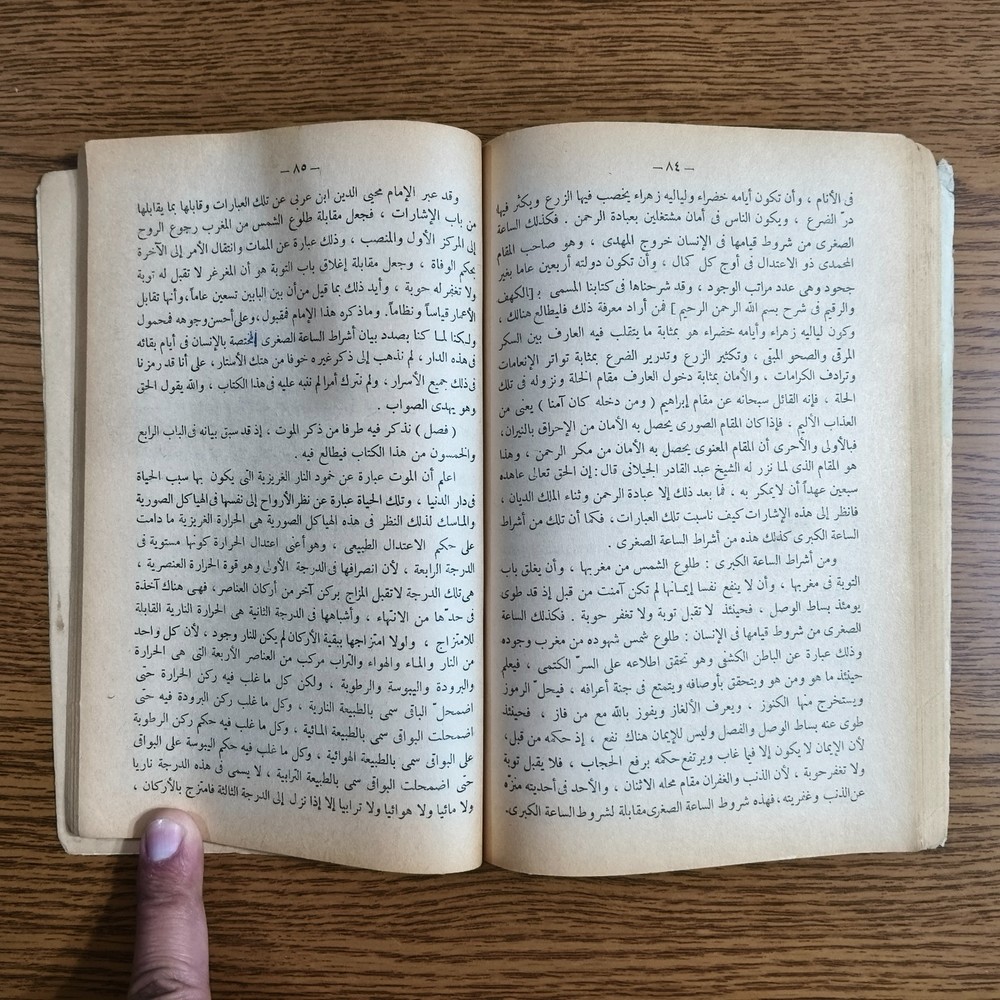 — ٨٤ —
فى الأنام ، وأن تكون أيامه خضراء ولياليه زهراء يخصب فيها الزرع ويكثر فيها
درّ الضرع ، ويكون الناس فى أمان مشتغلين بعبادة الرحمن . فكذلك الساعة
الصغرى من شروط قيامها فى الإنسان خروج المهدى ، وهو صاحب المقام
المحمدى ذو الاعتدال فى أوج كل كمال ، وأن تكون دولته أربعين عاما بغير
جحود وهى عدد مراتب الوجود ، وقد شرحناها فى كتابنا المسمى بـ [الكهف
والرقيم فى شرح بسم الله الرحمن الرحيم] فمن أراد معرفة ذلك فليطالع هنالك ،
وكون لياليه زهراء وأيامه خضراء هو بمثابة ما يتقلب فيه العارف بين السكر
المرقى والصحو المبقى ، وتكثير الزرع وتدرير الضرع بمثابة تواتر الإنعامات
وترادف الكرامات ، والأمان بمثابة دخول العارف مقام الخلة ونزوله فى تلك
الحلة ، فإنه القائل سبحانه عن مقام إبراهيم ( ومن دخله كان آمنا ) يعنى من
العذاب الأليم . فإذا كان المقام الصورى يحصل به الأمان من الإحراق بالنيران،
فبالأولى والأحرى أن المقام المعنوى يحصل به الأمان من مكر الرحمن ، وهذا
هو المقام الذى لما نزر له الشيخ عبد القادر الجيلانى قال: إن الحق تعالى عاهده
سبعين عهداً أن لا يمكر به ، فما بعد ذلك إلا عبادة الرحمن وثناء الملك الديان ،
فانظر إلى هذه الإشارات كيف ناسبت تلك العبارات، فكما أن تلك من أشراط
الساعة الكبرى كذلك هذه من أشراط الساعة الصغرى .
ومن أشراط الساعة الكبرى : طلوع الشمس من مغربها ، وأن يغلق باب
التوبة فى مغربها ، وأن لا ينفع نفسا إيمانها لم تكن آمنت من قبل إذ قد طوى
يومئذ بساط الوصل ، فحينئذ لا تقبل توبة ولا تغفر حوبة . فكذلك الساعة
الصغرى من شروط قيامها فى الإنسان : طلوع شمس شهوده من مغرب وجوده
وذلك عبارة عن الباطن الكشفى وهو تحقق اطلاعه على السرّ الكتمى ، فيعلم
حينئذ ما هو ومن هو ويتحقق بأوصافه ويتمتع فى جنة أعرافه ، فيحلّ الرموز
ويستخرج منها الكنوز . ويعرف الألغاز ويفوز بالله مع من فاز ، فحينئذ
طوى عنه بساط الوصل والفصل وليس للإيمان هناك نفع ، إذ حكمه من قبل،
لأن الإيمان لا يكون إلا فيما غاب ويرتفع حكمه برفع الحجاب ، فلا يقبل توبة
ولا تغفر حوبة ، لأن الذنب والغفران مقام محله الاثنان ، والأحد فى أحديته منزّه
عن الذنب وغفريته، فهذه شروط الساعة الصغرى مقابلة لشروط الساعة الكبرى.
— ٨٥ —
وقد عبر الإمام محيى الدين ابن عربى عن تلك العبارات وقابلها بما يقابلها
من باب الإشارات ، فجعل مقابلة طلوع الشمس من المغرب رجوع الروح
إلى المركز الأول والمنصب ، وذلك عبارة عن الممات وانتقال الأمر إلى الآخرة
بحكم الوفاة ، وجعل مقابلة إغلاق باب التوبة هو أن المغرغر لا تقبل له توبة
ولا تغفر له حوبة ، وأيد ذلك بما قيل من أن بين البابين تسعين عاماً، وأنها تقابل
الأعمار قياساً ونظاماً. وما ذكره هذا الإمام فمقبول، وعلى أحسن وجوهه فمحمول
ولكنا لما كنا بصدد بيان أشراط الساعة الصغرى المختصة بالإنسان فى أيام بقائه
فى هذه الدار، لم نذهب إلى ذكر غيره خوفا من هتك الأستار، على أنا قد رمزنا
فى ذلك جميع الأسرار ، ولم نترك أمرا لم ننبه عليه فى هذا الكتاب ، والله يقول الحق
وهو يهدى الصواب .
( فصل ) نذكر فيه طرفا من ذكر الموت ، إذ قد سبق بيانه فى الباب الرابع
والخمسون من هذا الكتاب فيطالع فيه .
اعلم أن الموت عبارة عن خمود النار الغريزية التى يكون بها سبب الحياة
فى دار الدنيا ، وتلك الحياة عبارة عن نظر الأرواح إلى نفسها فى الهياكل الصورية
والماسك لذلك النظر فى هذه الهياكل الصورية هى الحرارة الغريزية ما دامت
على حكم الاعتدال الطبيعى ، وهو أعنى اعتدال الحرارة كونها مستوية فى
الدرجة الرابعة ، لأن انصرافها فى الدرجة الأولى وهو قوة الحرارة العنصرية ،
هى تلك الدرجة لا تقبل المزاج بركن آخر من أركان العناصر، فهى هناك آخذة
فى حدّها من الانتهاء ، وأشباهها فى الدرجة الثانية هى الحرارة النارية القابلة
للامتزاج ، ولولا امتزاجها ببقية الأركان لم يكن للنار وجود ، لأن كل واحد
من النار والماء والهواء والتراب مركب من العناصر الأربعة التى هى الحرارة
والبرودة واليبوسة والرطوبة ، ولكن كل ما غلب فيه ركن الحرارة حتى
اضمحلّ الباقى سمى بالطبيعة النارية ، وكل ما غلب ركن البرودة فيه حتى
اضمحلت البواقى سمى بالطبيعة المائية ، وكل ما غلب فيه حكم ركن الرطوبة
على البواقى سمى بالطبيعة الهوائية ، وكل ما غلب فيه حكم اليبوسة على البواقى
حتى اضمحلت البواقى سمى بالطبيعة الترابية ، لا يسمى فى هذه الدرجة ناريا
ولا مائيا ولا هوائيا ولا ترابيا إلا إذا نزل إلى الدرجة الثالثة فامتزج بالأركان ،